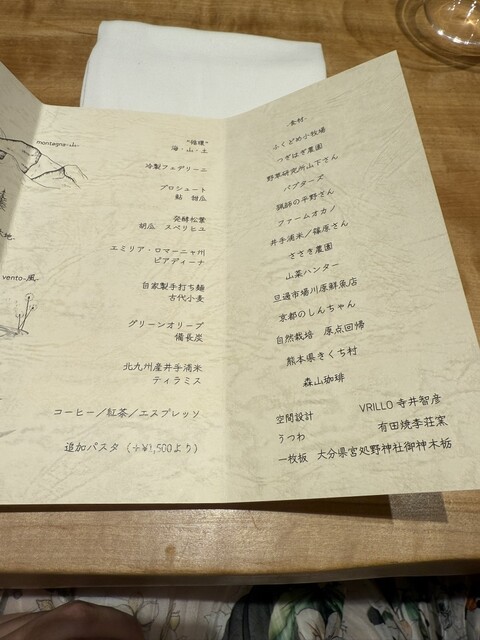 montagna-山-
地-
vento-風-
"循環"
海・山・土
冷製フェデリーニ
プロシュート
鮎 甜瓜
発酵松葉
胡瓜 スベリヒユ
エミリア・ロマーニャ州
ピアディーナ
自家製手打ち麺
古代小麦
グリーンオリーブ
備長炭
北九州産井手浦米
ティラミス
コーヒー/紅茶/エスプレッソ
追加パスタ (+¥1,500より)
-素材-
ふくどめ小牧場
つぎはぎ農園
野草研究所山下さん
バブターズ
猟師の平野さん
ファームオカノ
井手浦米/篠原さん
ささき農園
山菜ハンター
旦過市場川原鮮魚店
京都のしんちゃん
自然栽培 原点回帰
熊本県きくち村
森山珈琲
空間設計 VRILLO 寺井智彦
うつわ 有田焼李荘窯
一枚板 大分県宮処野神社御神木栃